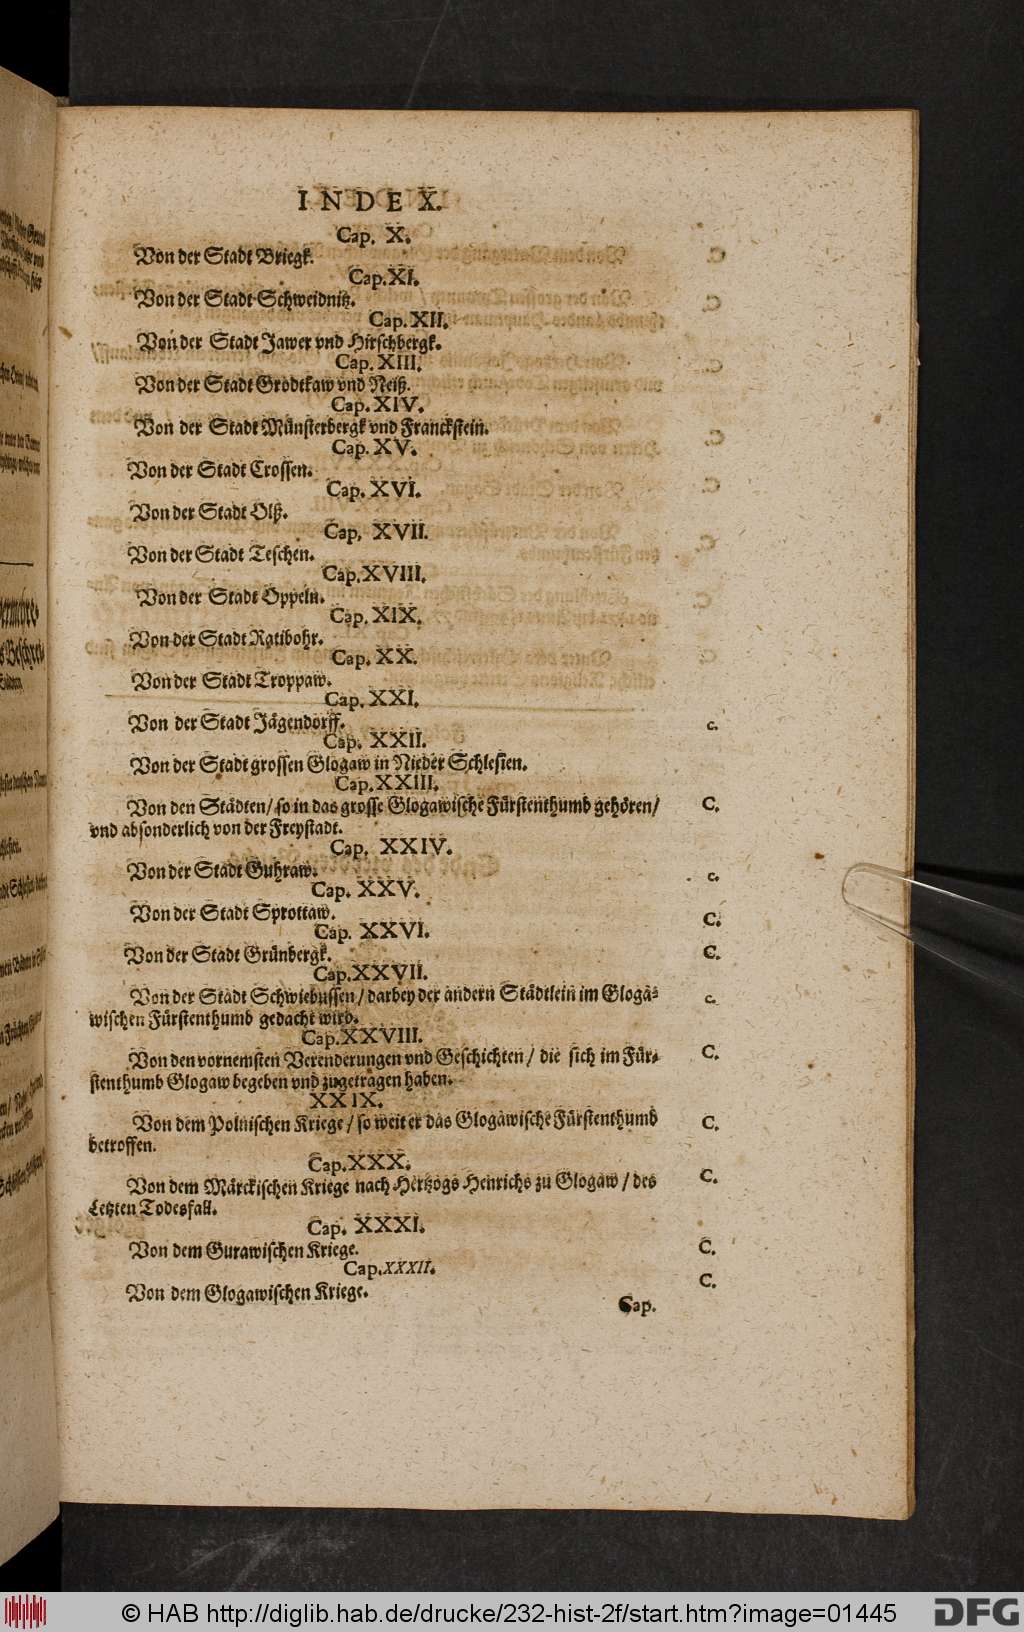 INDEX.
Cap. X.
Von der Stadt Briegk.
Cap. XI.
Von der Stadt Schweidnitz.
Cap. XII.
Von der Stadt Jawer vnd Hirschbergk.
Cap. XIII.
Von der Stadt Grodtkaw vnd Neiß.
Cap. XIV.
Von der Stadt Münsterbergk vnd Franckstein.
Cap. XV.
Von der Stadt Crossen.
Cap. XVI.
Von der Stadt Olß.
Cap. XVII.
Von der Stadt Teschen.
Cap. XVIII.
Von der Stadt Oppeln.
Cap. XIX.
Von der Stadt Ratibohr.
Cap. XX.
Von der Stadt Troppaw.
Cap. XXI.
Von der Stadt Jägendorff. c.
Cap. XXII.
Von der Stadt grossen Glogaw in Nieder Schlesien.
Cap. XXIII.
Von den Städten / so in das grosse Glogawische Fürstenthumb gehören / C.
vnd absonderlich von der Freystadt.
Cap. XXIV.
Von der Stadt Guhraw. c.
Cap. XXV.
Von der Stadt Sprottaw. C.
Cap. XXVI.
Von der Stadt Grünbergk. C.
Cap. XXVII.
Von der Stadt Schwiebussen / darbey der andern Städtlein im Gloga- c.
wischen Fürstenthumb gedacht wird.
Cap. XXVIII.
Von den vornemsten Verenderungen vnd Geschichten / die sich im Für- C.
stenthumb Glogaw begeben vnd zugetragen haben.
XXIX.
Von dem Polnischen Kriege / so weit er das Glogawische Fürstenthumb C.
betroffen.
Cap. XXX.
Von dem Märckischen Kriege nach Hertzogs Henrichs zu Glogaw / des C.
Letzten Todesfall.
Cap. XXXI.
Von dem Gurawischen Kriege. C.
Cap. XXXII.
Von dem Glogawischen Kriege. C.
Cap.
© HAB http://diglib.hab.de/drucke/232-hist-2f/start.htm?image=01445
DFG